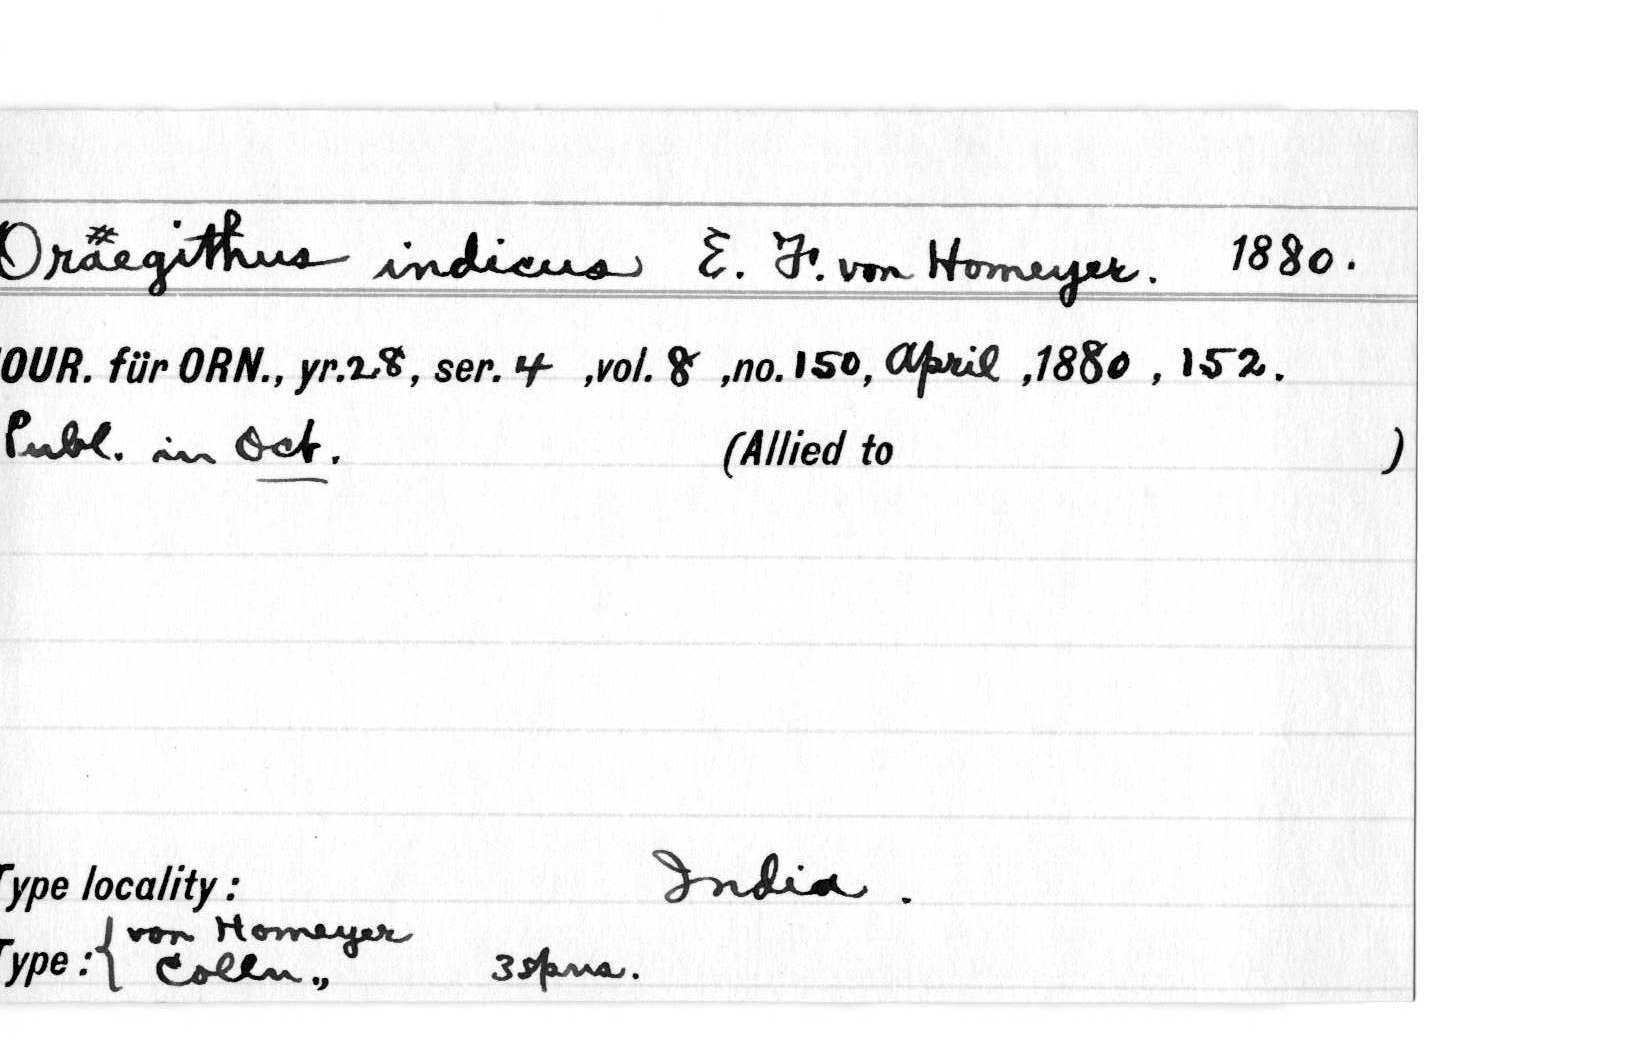 Oräegithus indicus E. F. von Homeyer. 1880.
OUR. für ORN., yr.28, ser. 4 ,vol. 8 ,no. 150, April ,1880 , 152.
Publ. in Oct. (Allied to )
Type locality : India .
Type : { von Homeyer
Colln., 3 spns.